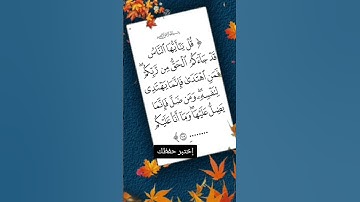 ﴿ قُلْ يَـٰٓأَيُّهَا ٱلنَّاسُ
قَدْ جَآءَكُمُ ٱلْحَقُّ مِن رَّبِّكُمْ ۖ
فَمَنِ ٱهْتَدَىٰ فَإِنَّمَا يَهْتَدِى
لِنَفْسِهِۦ ۖ وَمَن ضَلَّ فَإِنَّمَا
يَضِلُّ عَلَيْهَا ۖ وَمَآ أَنَا۠ عَلَيْكُم
........ ﴾
إختبر حفظك